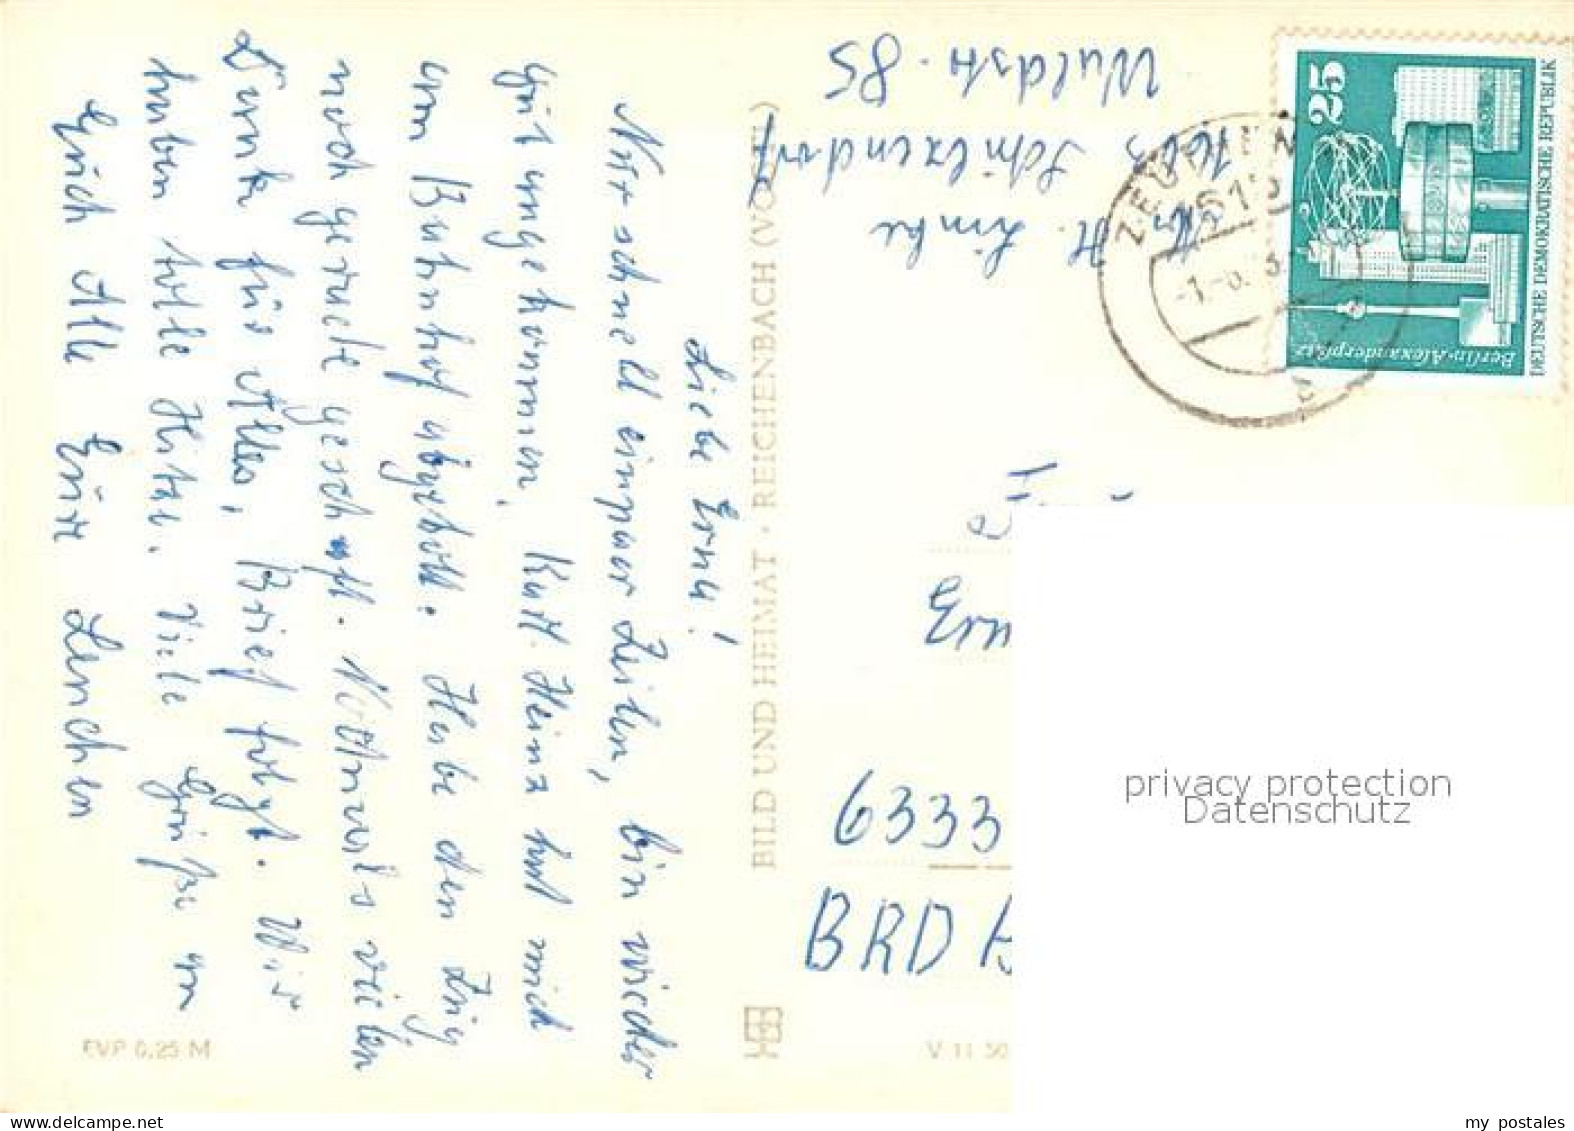 Liebe Erna!
Nur schnell ein paar Zeilen, bin wieder
gut angekommen. Karl-Heinz hat mich
vom Bahnhof abgeholt. Habe den Zug
noch gerade geschafft. Nochmals vielen
Dank für Alles, Brief folgt. Wir
haben tolle Hitze. Viele Grüße an
Euch Alle Eure Lenchen
EVP 0,25 M
BILD UND HEIMAT · REICHENBACH (VOGTL)
V 11 50
H. Linke
Schulzendorf
Waldstr. 85
ZEUTHEN
1615
25
Berlin-Alexanderplatz
DEUTSCHE DEMOKRATISCHE REPUBLIK
6333
BRD
privacy protection
Datenschutz
my postales